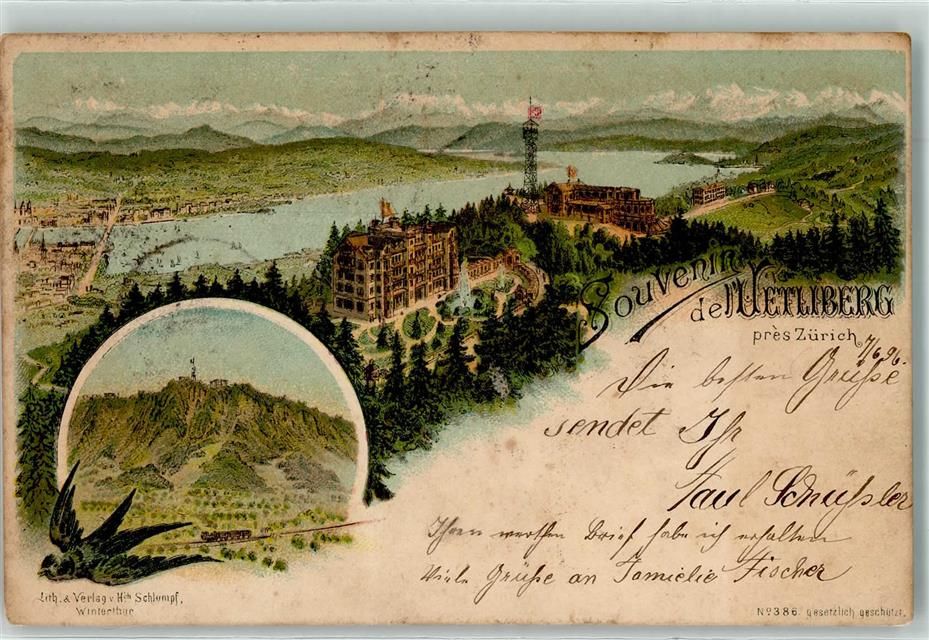 Souvenir
de l'Uetliberg
près Zürich
7/6 96.
Die besten Grüße
sendet Ihr
Paul Schüßler
Ihren werthen Brief habe ich erhalten
Viele Grüße an Famielie Fischer
Lith. & Verlag v. Hch Schlumpf,
Winterthur
No 386. gesetzlich geschützt.